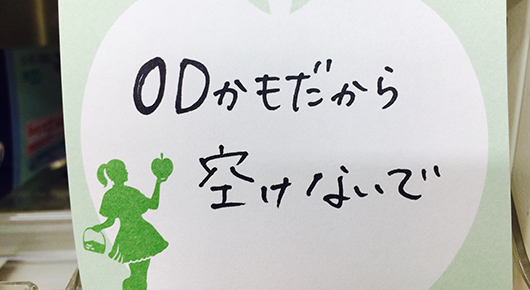 ODかもだから
空けないで